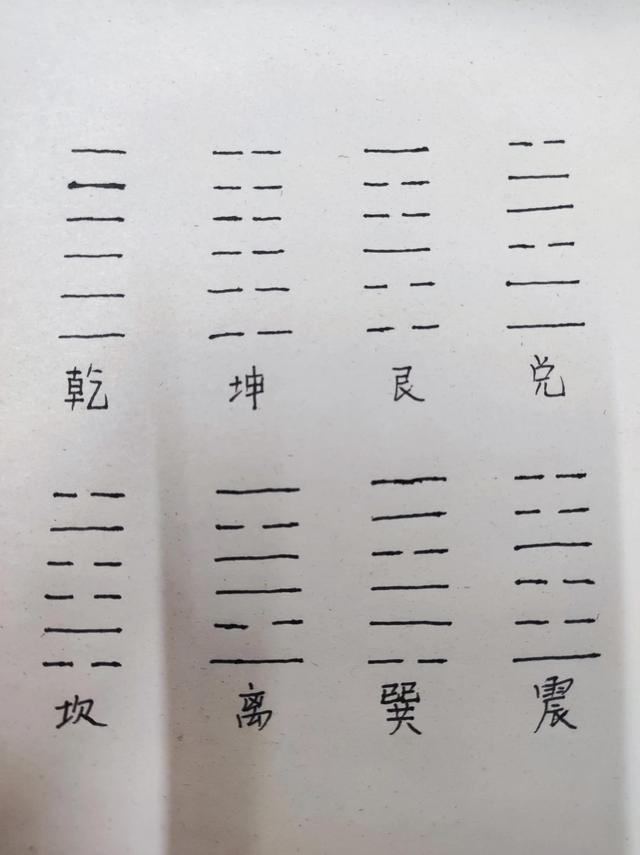 乾 坤 艮 兑
坎 离 巽 震